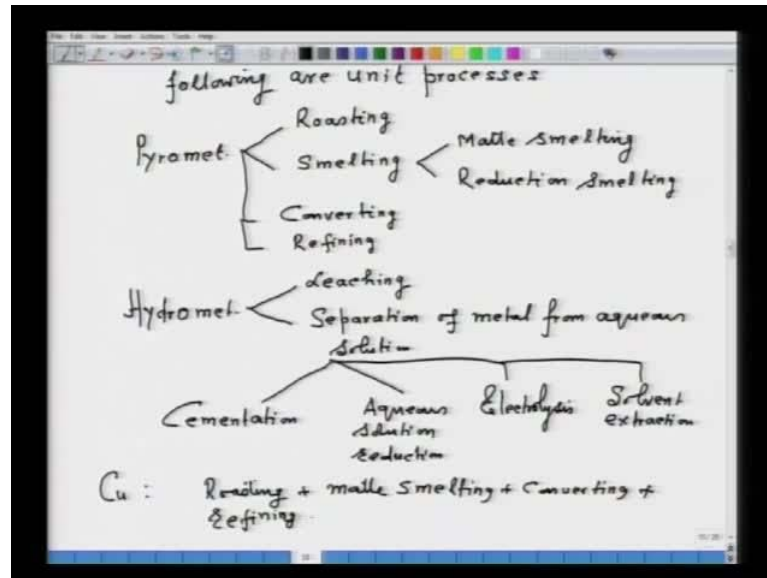 File Edit View Insert Actions Tools Help
following are unit processes
Roasting
Pyromet.
Smelting
Matte smelting
Reduction smelting
Converting
Refining
Leaching
Hydromet.
Separation of metal from aqueous
solution
Cementation
Aqueous
solution
reduction
Electrolysis
Solvent
extraction
Cu : Roasting + matte smelting + Converting +
Refining.